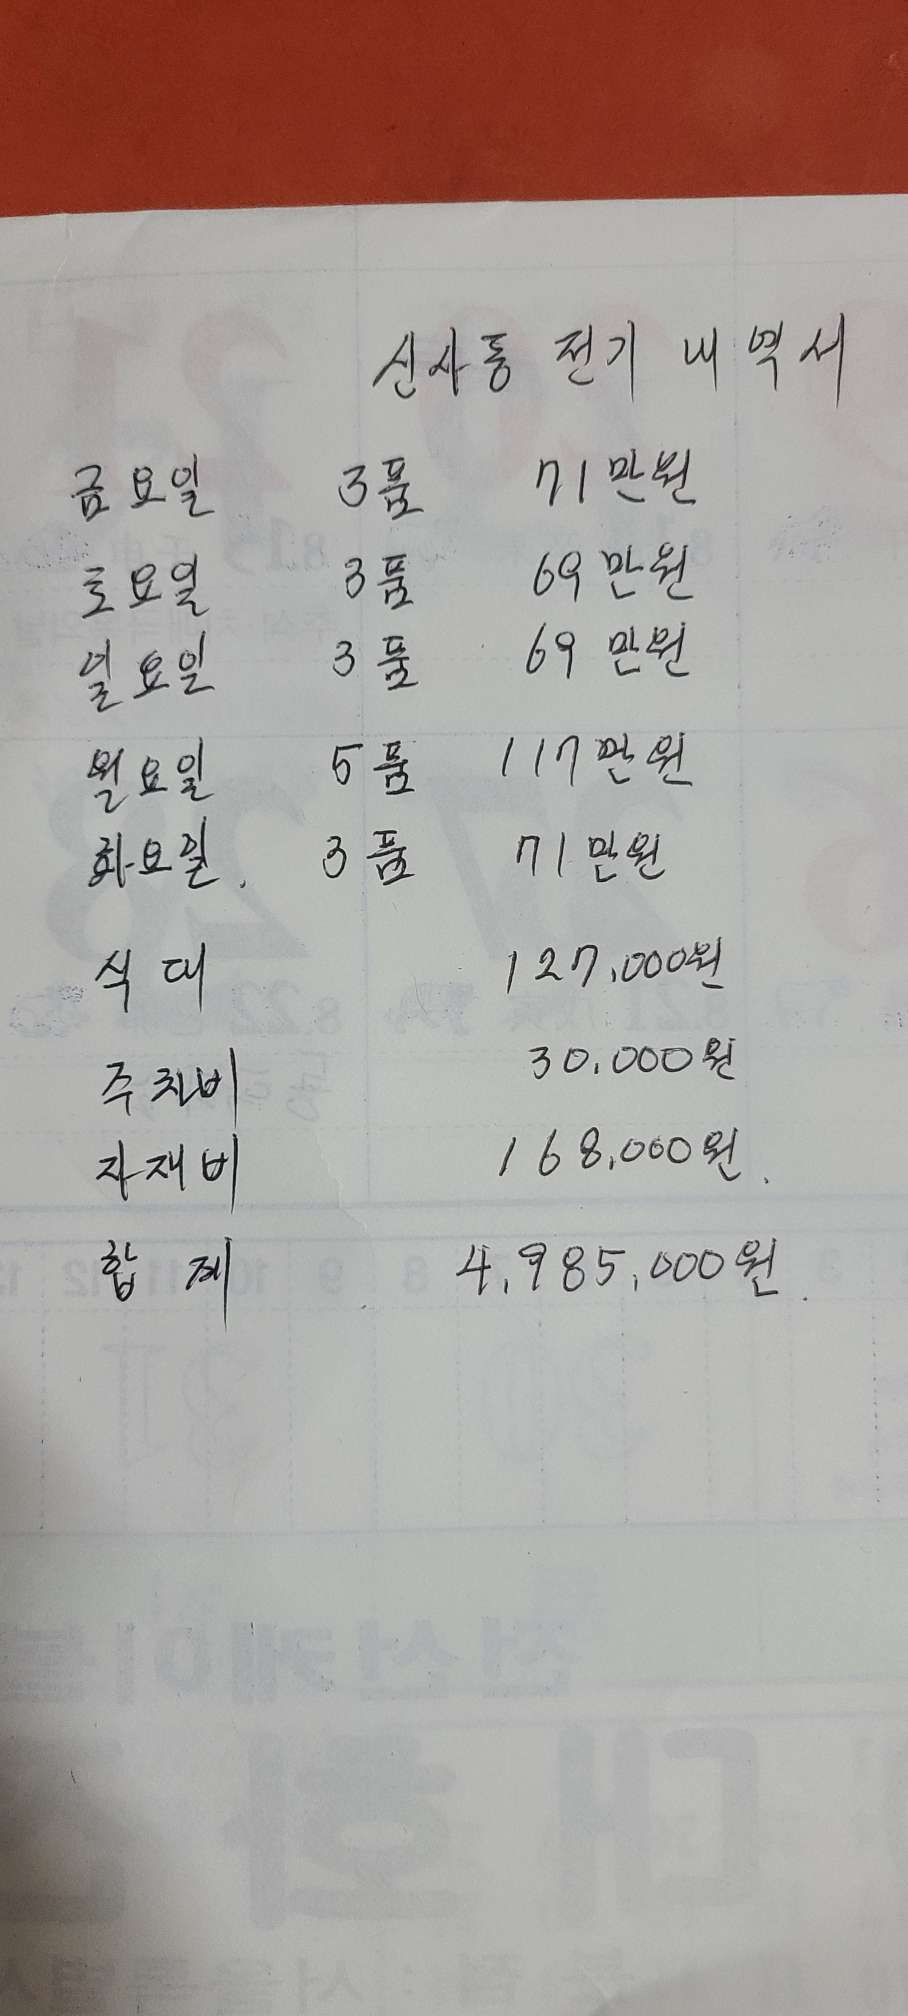 신사동 전기 내역서
금요일 3품 71만원
토요일 3품 69만원
일요일 3품 69만원
월요일 5품 117만원
화요일. 3품 71만원
식대 127,000원
주차비 30,000원
자재비 168,000원.
합계 4,985,000원.